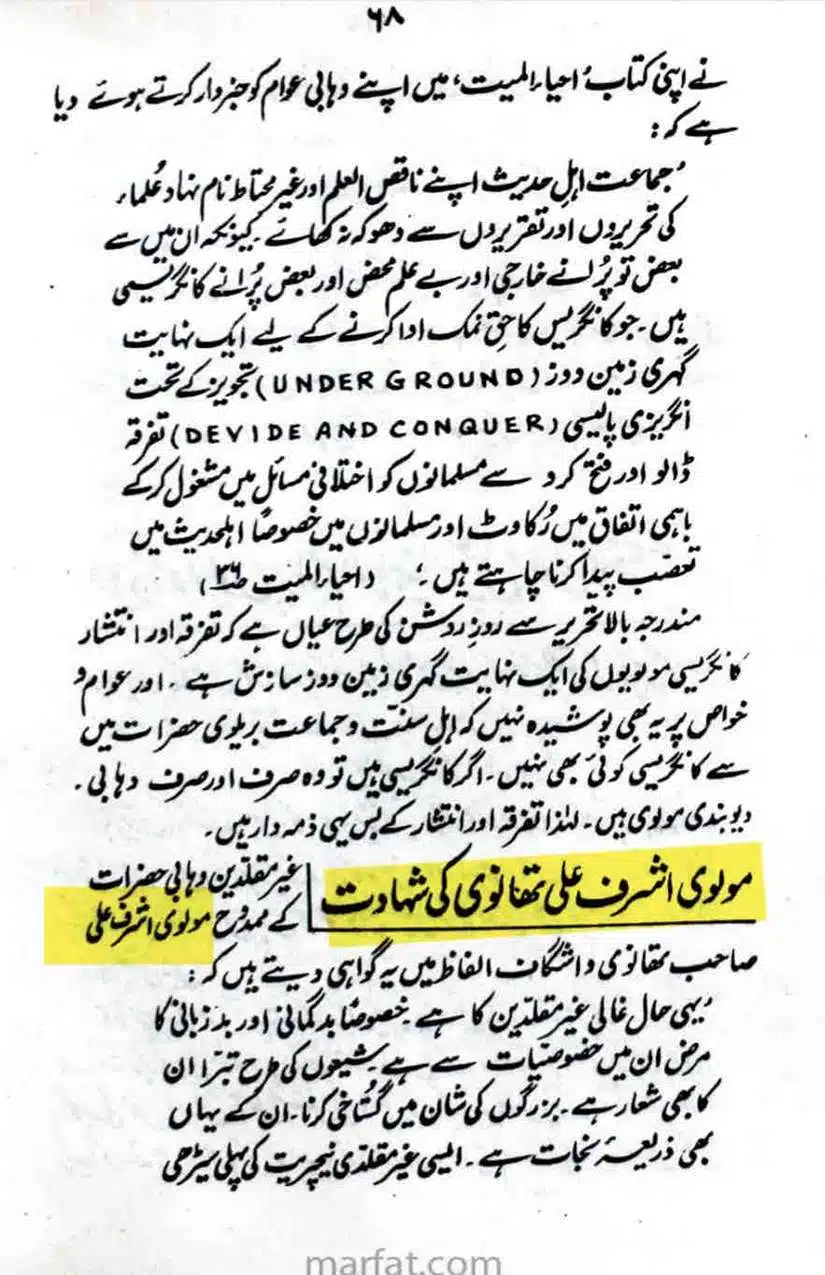 ۶۸
نے اپنی کتاب ’احیاء المیت‘ میں اپنے وہابی عوام کو خبردار کرتے ہوئے دیا
ہے کہ :
’جماعت اہلِ حدیث اپنے ناقص العلم اور غیر محتاط نام نہاد عُلماء
کی تحریروں اور تقریروں سے دھوکہ نہ کھائے۔ کیونکہ ان میں سے
بعض تو پُرانے خارجی اور بے علم محض اور بعض پُرانے کانگریسی
ہیں۔ جو کانگریس کا حقِ نمک ادا کرنے کے لیے ایک نہایت
گہری زمین دوز (UNDER GROUND) تجویز کے تحت
انگریزی پالیسی (DEVIDE AND CONQUER) تفرقہ
ڈالو اور فتح کرو سے مسلمانوں کو اختلافی مسائل میں مشغول کر کے
باہمی اتفاق میں رُکاوٹ اور مسلمانوں میں خصوصًا اہلحدیث میں
تعصّب پیدا کرنا چاہتے ہیں‘ (احیاء المیت ص۳۶)
مندرجہ بالا تحریر سے روزِ روشن کی طرح عیاں ہے کہ تفرقہ اور انتشار
کانگریسی مولویوں کی ایک نہایت گہری زمین دوز سازش ہے۔ اور عوام و
خواص پر یہ بھی پوشیدہ نہیں کہ اہلِ سنّت و جماعت بریلوی حضرات میں
سے کانگریسی کوئی بھی نہیں۔ اگر کانگریسی ہیں تو وہ صرف اور صرف وہابی۔
دیوبندی مولوی ہیں۔ لہٰذا تفرقہ اور انتشار کے بس یہی ذمہ دار ہیں۔
مولوی اشرف علی تھانوی کی شہادت
غیر مقلدین وہابی حضرات
کے ممدوح مولوی اشرف علی
صاحب تھانوی واشگاف الفاظ میں یہ گواہی دیتے ہیں کہ :
’یہی حال غالی غیر مقلدین کا ہے۔ خصوصًا بدگمانی اور بدزبانی کا
مرض ان میں خصوصیّات سے ہے۔ شیعوں کی طرح تبرّا ان
کا بھی شعار ہے۔ بزرگوں کی شان میں گستاخی کرنا۔ ان کے یہاں
بھی ذریعۂ نجات ہے۔ ایسی غیر مقلدی نیچریت کی پہلی سیڑھی
marfat.com